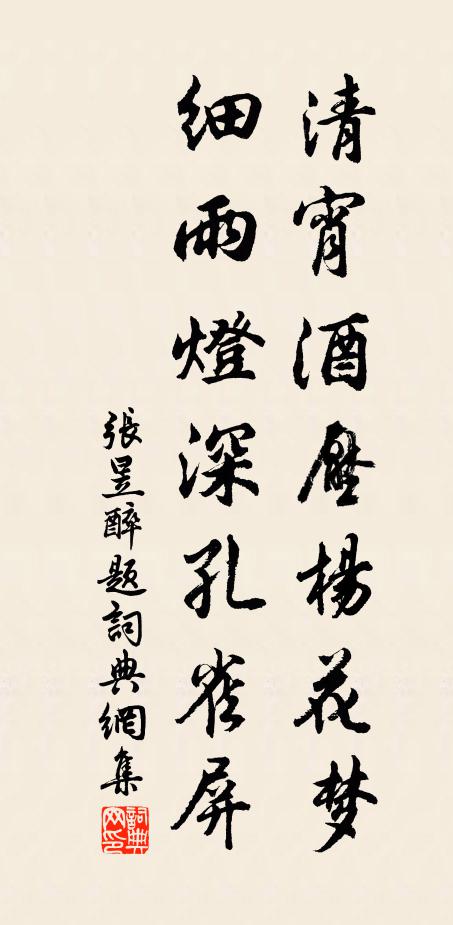 清宵酒壓楊花梦
細雨燈深孔雀屏
張昱醉題詞典網集
詞典網印